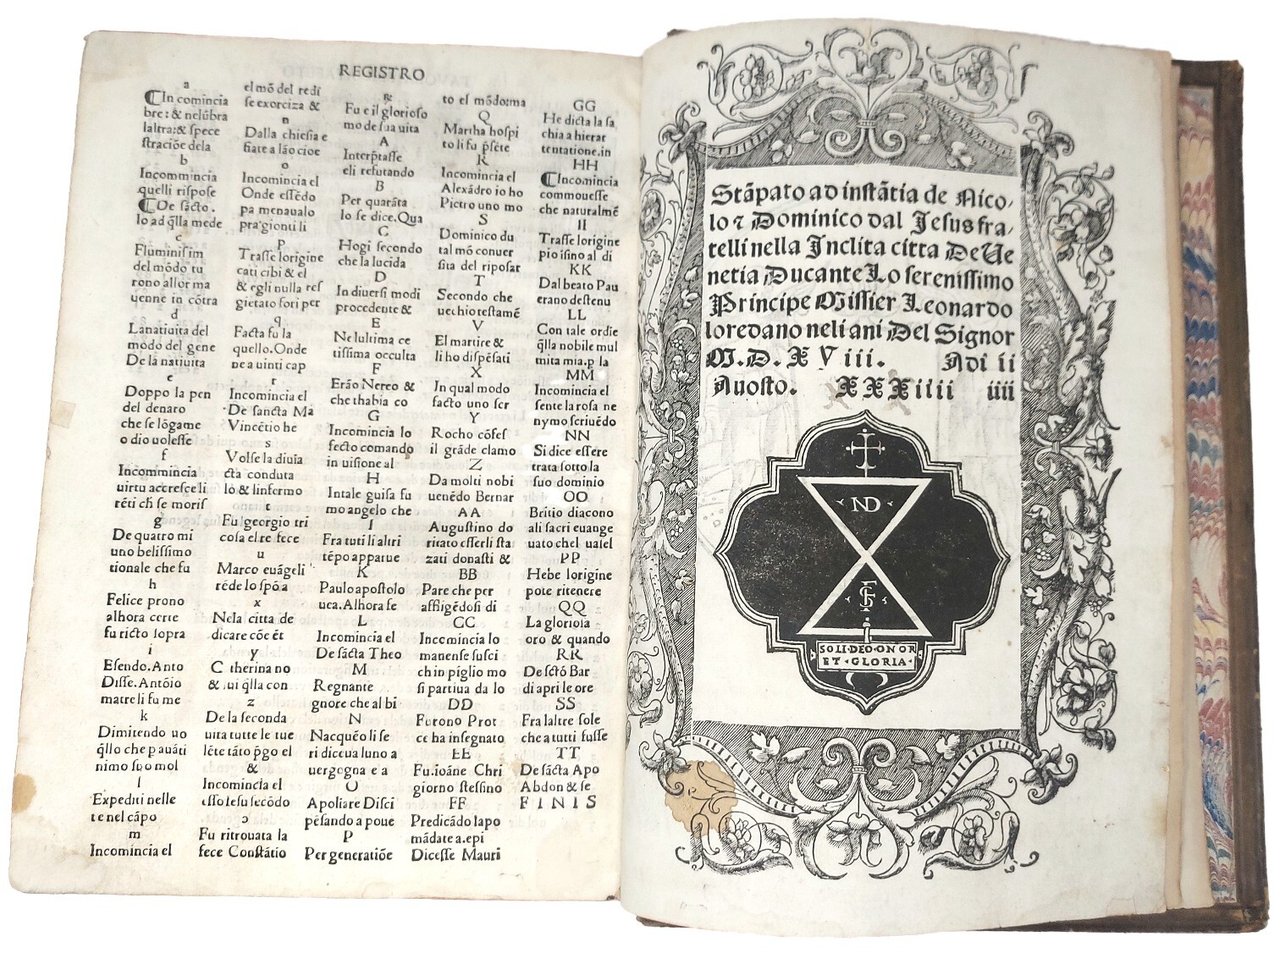 REGISTRO
a
¶In comincia
bre: & nelūbra
laltra: & spece
stratiōe dela
b
Incommincia
quelli rispose
¶De sācto.
lo ad q̄lla mede
c
Fluminissim
del mōdo tu
rono allor ma
uenne in cōtra
d
La natiuita del
modo del gene
De la natiuita
e
Doppo la pen
del denaro
che se lōgame
o dio uolesse
f
Incommincia
uirtu accresce li
rēti ch se moris
g
De quatro mi
uno belissimo
tionale che fu
h
Felice prono
alhora certe
fu ricto sopra
i
Esendo. Anto
Disse. Antōio
matre li fu me
k
Dimitendo uo
q̄llo che pauāti
nimo suo mol
l
Expediti nelle
te nel cāpo
m
Incomīncia el
el mō del redi
se exorciza &
n
Dalla chiesia e
siate a lāo cioe
o
Incomincia el
Onde essēdo
pa menaualo
pra gionti li
p
Trasse lorigine
cati cibi & el
& egli nulla res
gietato fori per
q
Facta fu la
quello. Onde
ne a uinti cap
r
Incomincia el
De sancta Ma
Vincētio he
s
Volse la diuīa
cta conduta
lo & linfermo
t
Fu georgio tri
cosa el re fece
u
Marco euāgeli
rēde lo spō a
x
Nela citta de
dicare cōe ēt
y
Catherina no
& iui q̄lla con
z
De la seconda
uita tutte le tue
lēte tāto pgo el
&
Incomīcia el
esso Iesu secōdo
ɔ
Fu ritrouata la
fece Constātio
ꝶ
Fu e il glorioso
mo de sua uita
A
Interp̄tasse
eli refutando
B
Per quarāta
lo se dice. Qua
C
Hogi secondo
che la lucida
D
In diuersi modi
procedente &
E
Nel ultima ce
tissima occulta
F
Erāo Nereo &
che thabia co
G
Incomincia lo
fecto comando
in uisione al
H
In tale guisa fu
mo angelo che
I
Fra tuti li altri
tēpo apparue
K
Paulo apostolo
uca. Alhora se
L
Incomincia el
De sācta Theo
M
Regnante
gnore che al bi
N
Nacquēo li se
ri diceua luno a
uergogna e a
O
Apoliare Disci
pēsando a poue
P
Per generatiōe
to el mōdo: ma
Q
Martha hospi
to li fu p̄sēte
R
Incomincia el
Alexādro io ho
Pietro uno mo
S
Dominico du
tal mō conuer
sita del riposar
T
Secondo che
uechio testamē
V
El martire &
li ho dispēsati
X
In qual modo
facto uno ser
Y
Rocho cōfes
il grāde clamo
Z
Da molti nobi
uenēdo Bernar
AA
Augustino do
ritato esserli sta
zati donasti &
BB
Pare che per
affligēdosi di
CC
Incomīncia lo
manense susci
ch in piglio mo
si partiua da lo
DD
Furono Prot
ce ha insegnato
EE
Fu. ioāne Chri
giorno stessino
FF
Predicādo lapo
mādate a. epi
Dicesse Mauri
GG
He dicta la sa
chia a hierar
tentatione. in
HH
¶Incomincia
commouesse
che naturalmē
II
Trasse lorigine
pio isino al di
KK
Dal beato Pau
erano destenu
LL
Con tale ordie
q̄lla nobile mul
mita mia. p la
MM
Incomincia el
sente la rosa ne
nymo scriuēdo
NN
Si dice essere
trata sotto la
suo dominio
OO
Britio diacono
ali sacri euange
uato chel ualel
PP
Hebe lorigine
pote ritenere
QQ
La gloriosa
oro & quando
RR
De sctō Bar
di aprile ore
SS
Fra laltre sole
che a tutti fusse
TT
De sācta Apo
Abdon & se
FINIS
Stāpato ad instātia de Nico-
lo ⁊ Dominico dal Jesus fra-
telli nella Inclita citta De Ve
netia Ducante Lo serenissimo
Principe Missier Leonardo
loredano neli ani Del Signor
M.D.XViii. Adi ii
Auosto. XXXiiii iiii
ND
SF
SOLI·DEO·ONOR
ET·GLORIA·